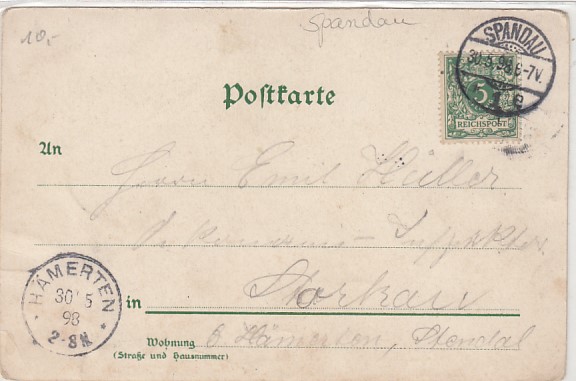 10,-
Spandau
SPANDAU
30.5.98.6-7V.
1 e
5
REICHSPOST
Postkarte
An
Herrn Emil Heller
Storkau
in
HÄMERTEN
30 5
98
2-8N.
Wohnung
(Straße und Hausnummer)
b. Hämerten, Stendal